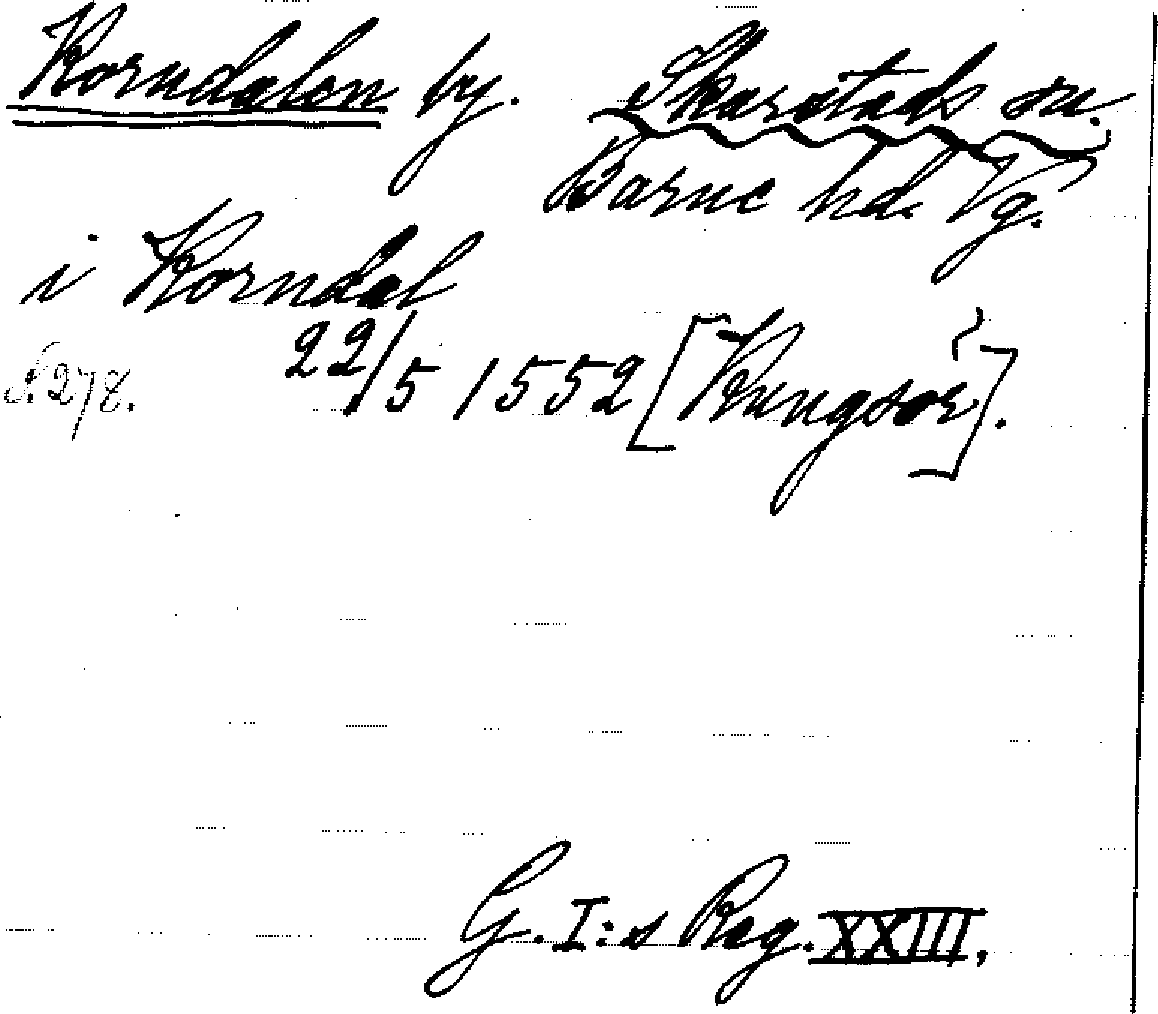 Korndalen by. Skarstads sn.
Barne hd. Vg.
i Korndal
22/5 1552 [Kungsör].
S. 278.
G. I:s Reg. XXIII,